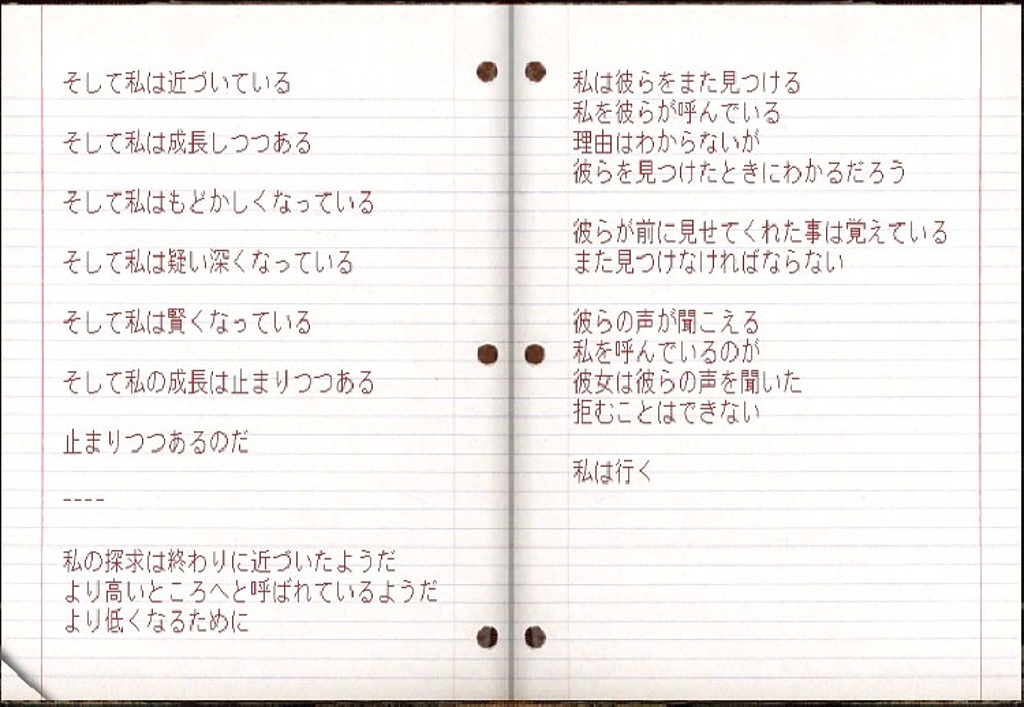 そして私は近づいている
そして私は成長しつつある
そして私はもどかしくなっている
そして私は疑い深くなっている
そして私は賢くなっている
そして私の成長は止まりつつある
止まりつつあるのだ
----
私の探求は終わりに近づいたようだ
より高いところへと呼ばれているようだ
より低くなるために
私は彼らをまた見つける
私を彼らが呼んでいる
理由はわからないが
彼らを見つけたときにわかるだろう
彼らが前に見せてくれた事は覚えている
また見つけなければならない
彼らの声が聞こえる
私を呼んでいるのが
彼女は彼らの声を聞いた
拒むことはできない
私は行く